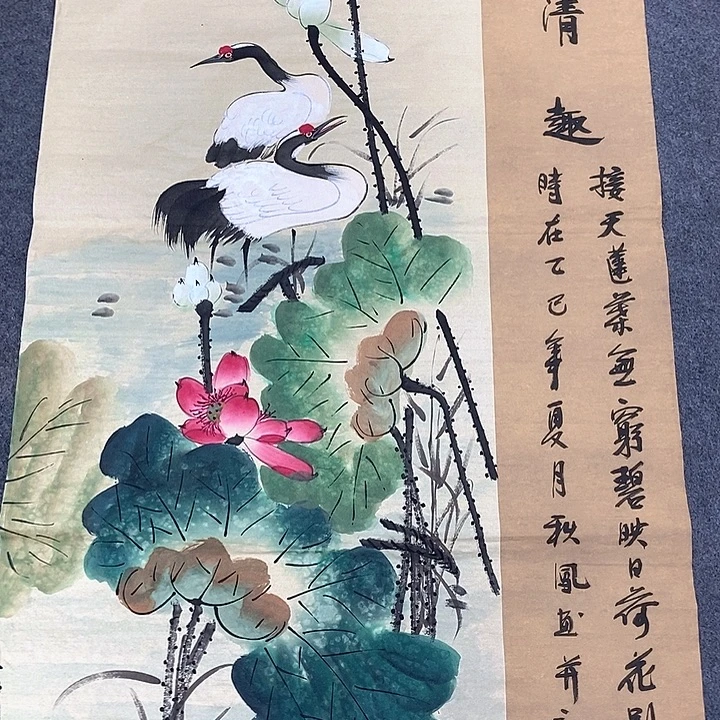 清趣
接天蓮葉無窮碧映日荷花別
時在乙巳年夏月秋鳳画并